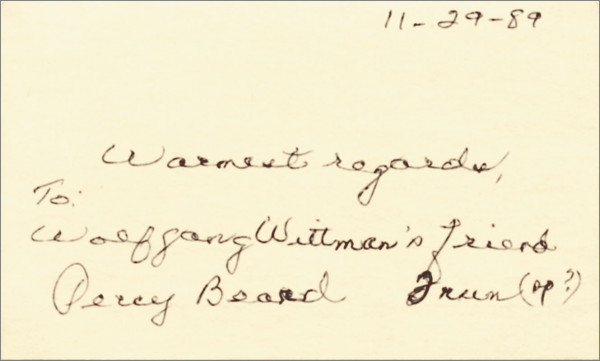 11-29-89
Warmest regards,
To:
Wolfgang Wittman's friend
Percy Beard (sp?)